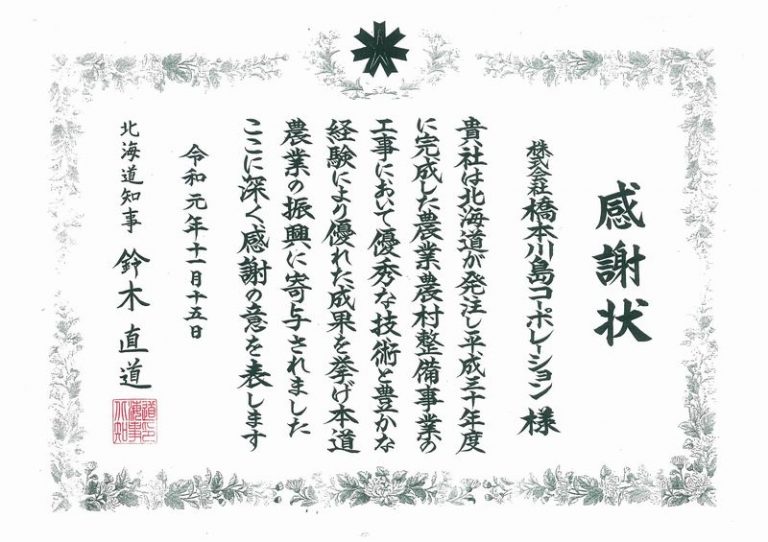 感謝状
株式会社橋本川島コーポレーション 様
貴社は北海道が発注し平成三十年度
に完成した農業農村整備事業の
工事において優秀な技術と豊かな
経験により優れた成果を挙げ本道
農業の振興に寄与されました
ここに深く感謝の意を表します
令和元年十一月十五日
北海道知事 鈴木直道